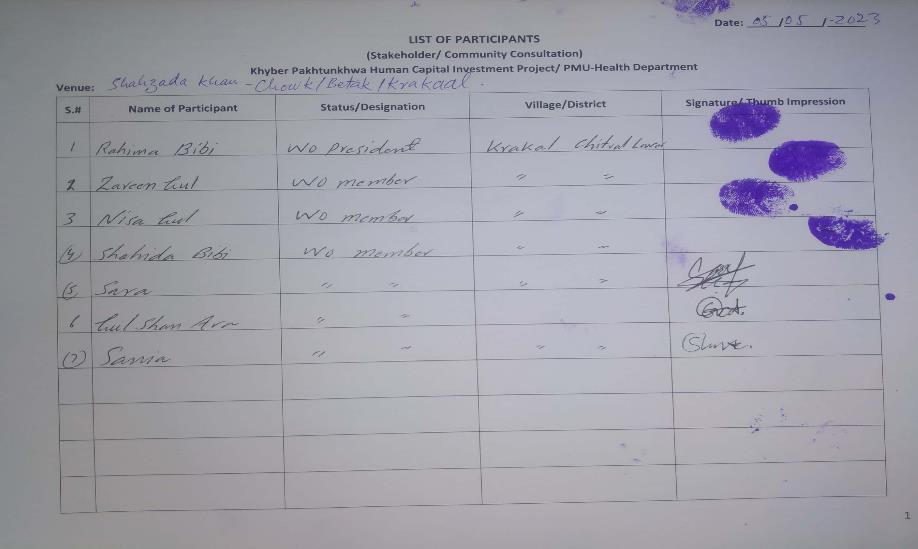 Date: 05/05/-2023
LIST OF PARTICIPANTS
(Stakeholder/ Community Consultation)
Khyber Pakhtunkhwa Human Capital Investment Project/ PMU-Health Department
Venue: Shahzada Khan - Chowk/Betak/Krakaal.
S.# Name of Participant Status/Designation Village/District Signature/ Thumb Impression
1 Rahima Bibi WO President Krakal Chitral Lower
2 Zareen Gul WO member " "
3 Nisa Gul WO member " "
(4) Shahida Bibi WO member " "
(5) Sara " " " "
6 Gul Shan Ara " "
(7) Sania " " " "
1